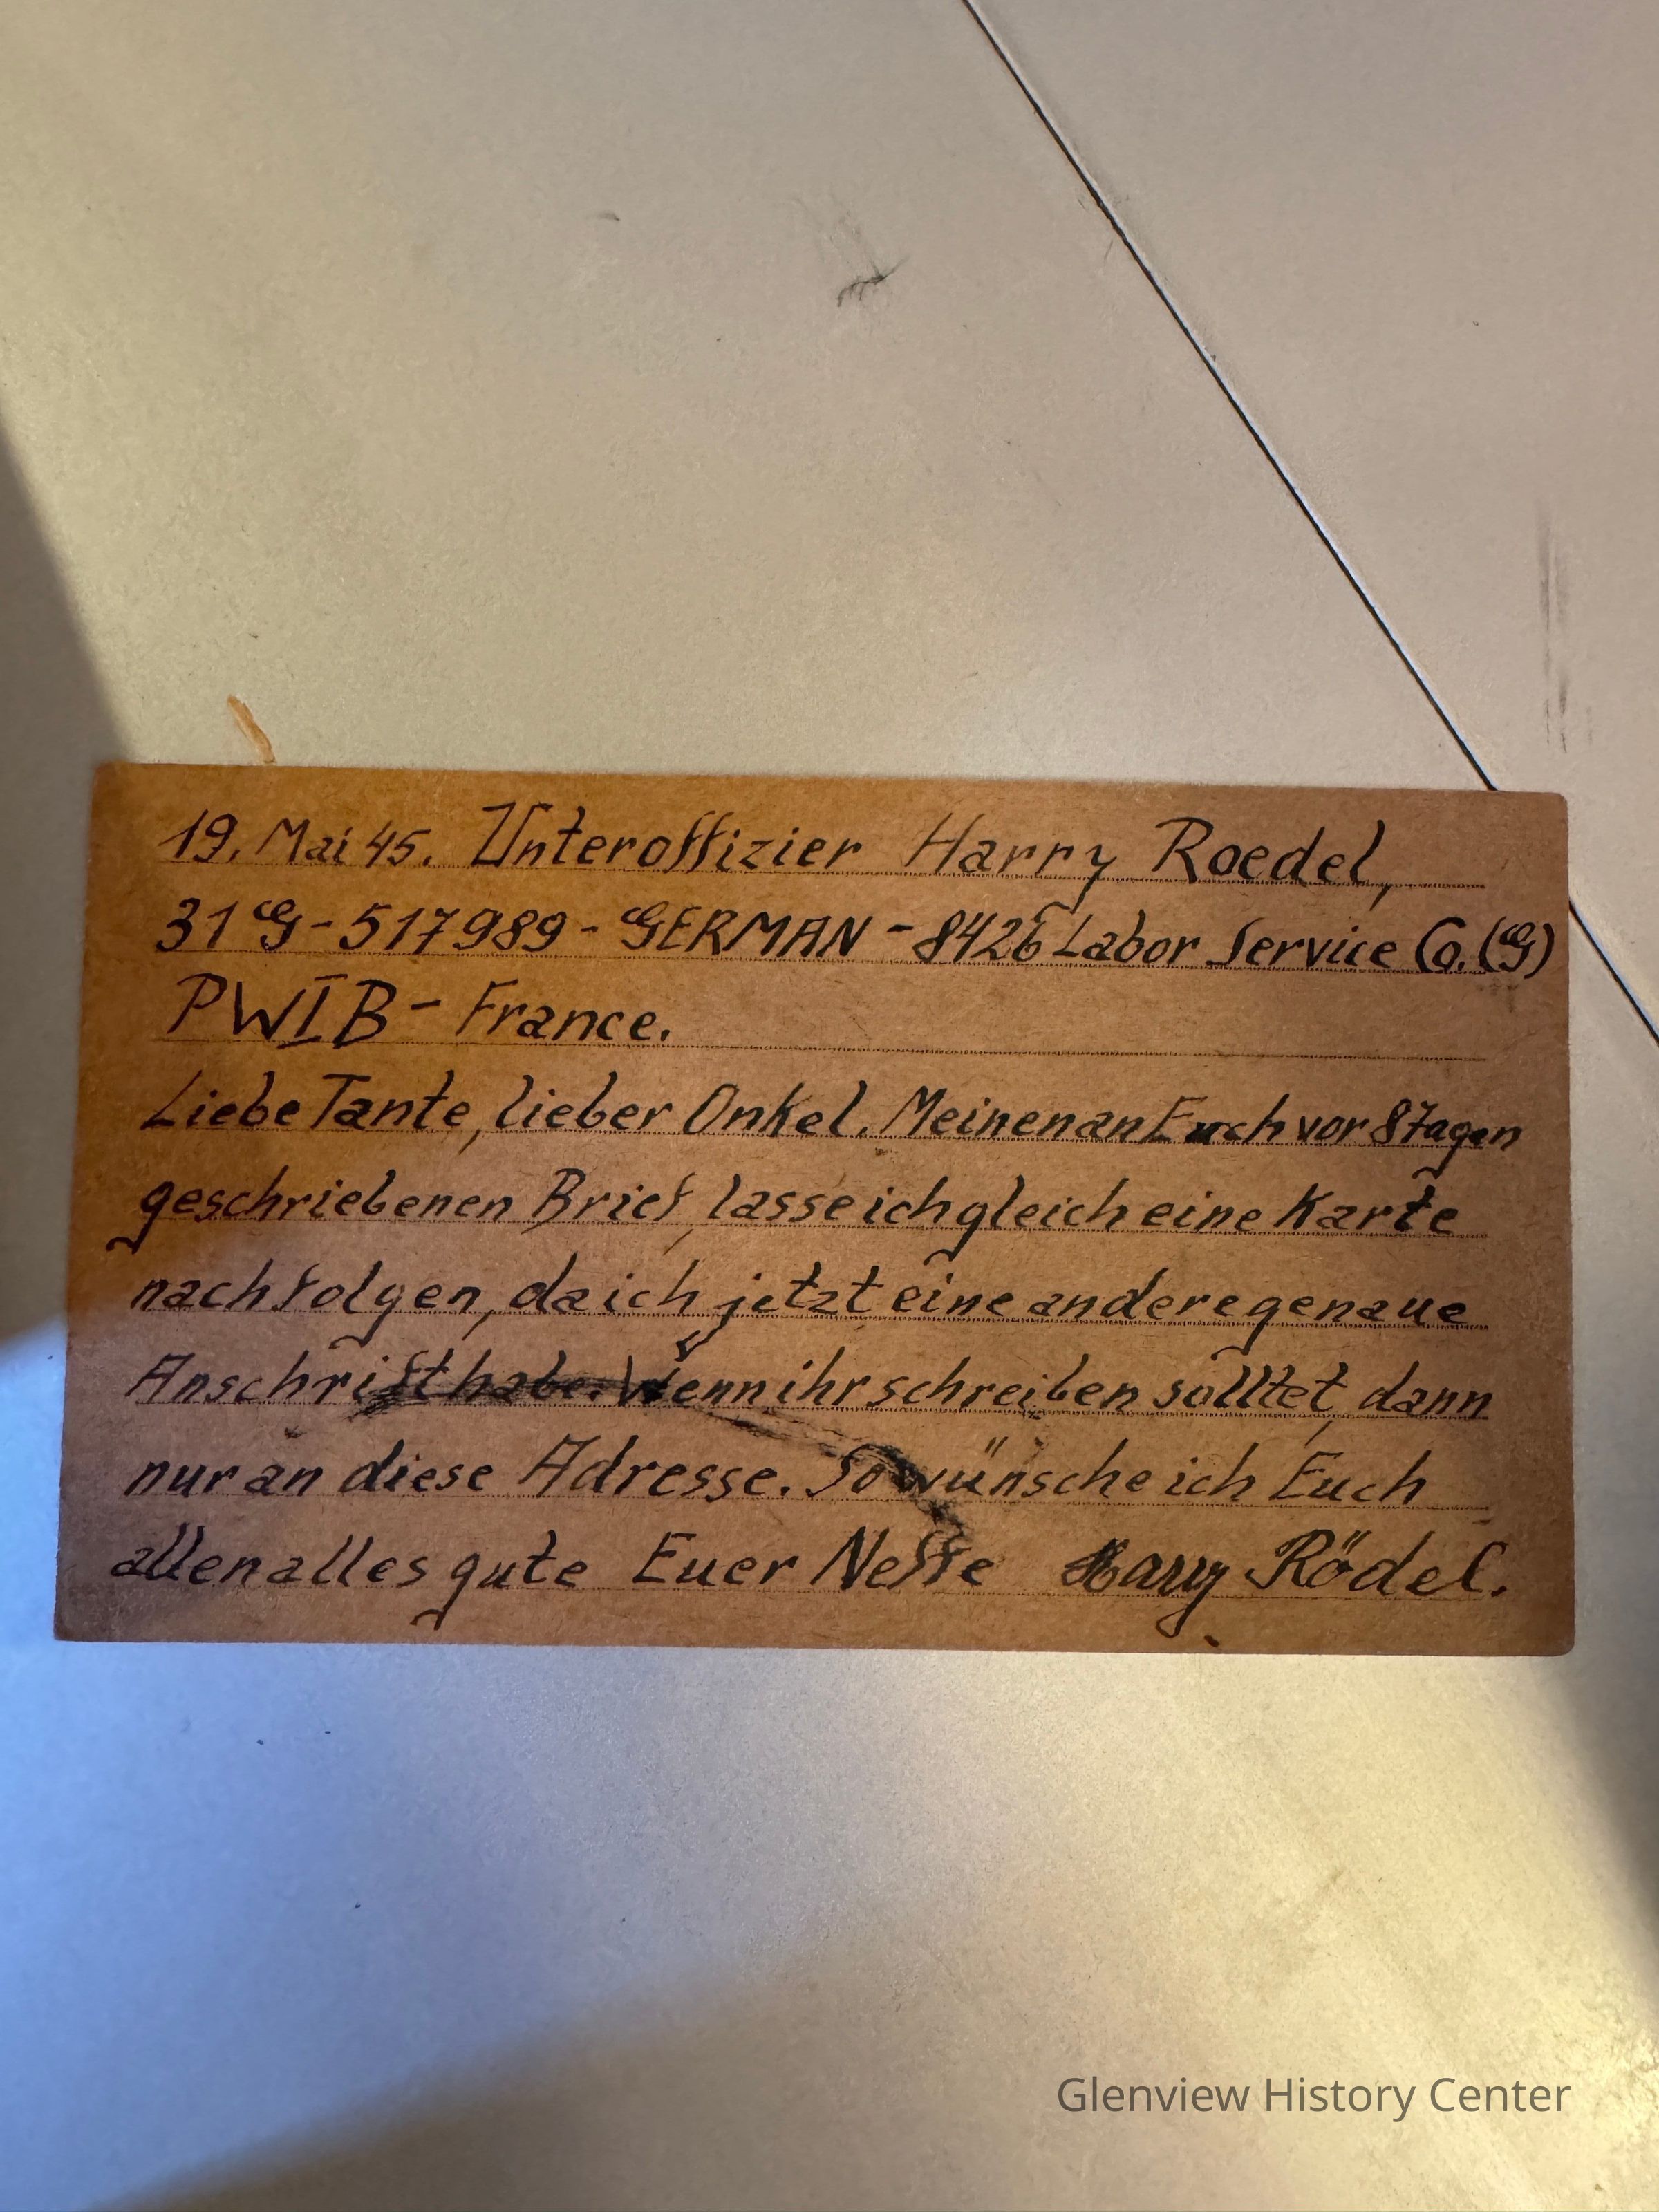 19. Mai 45. Unteroffizier Harry Roedel,
31 G - 517989 - GERMAN - 8426 Labor Service Co. (G)
PWIB - France.
Liebe Tante, lieber Onkel. Meinen an Euch vor 8 Tagen
geschriebenen Brief, lasse ich gleich eine Karte
nachfolgen, da ich jetzt eine andere genaue
Anschrift habe. Wenn ihr schreiben solltet, dann
nur an diese Adresse. So wünsche ich Euch
allen alles gute Euer Neffe Harry Rödel.
Glenview History Center